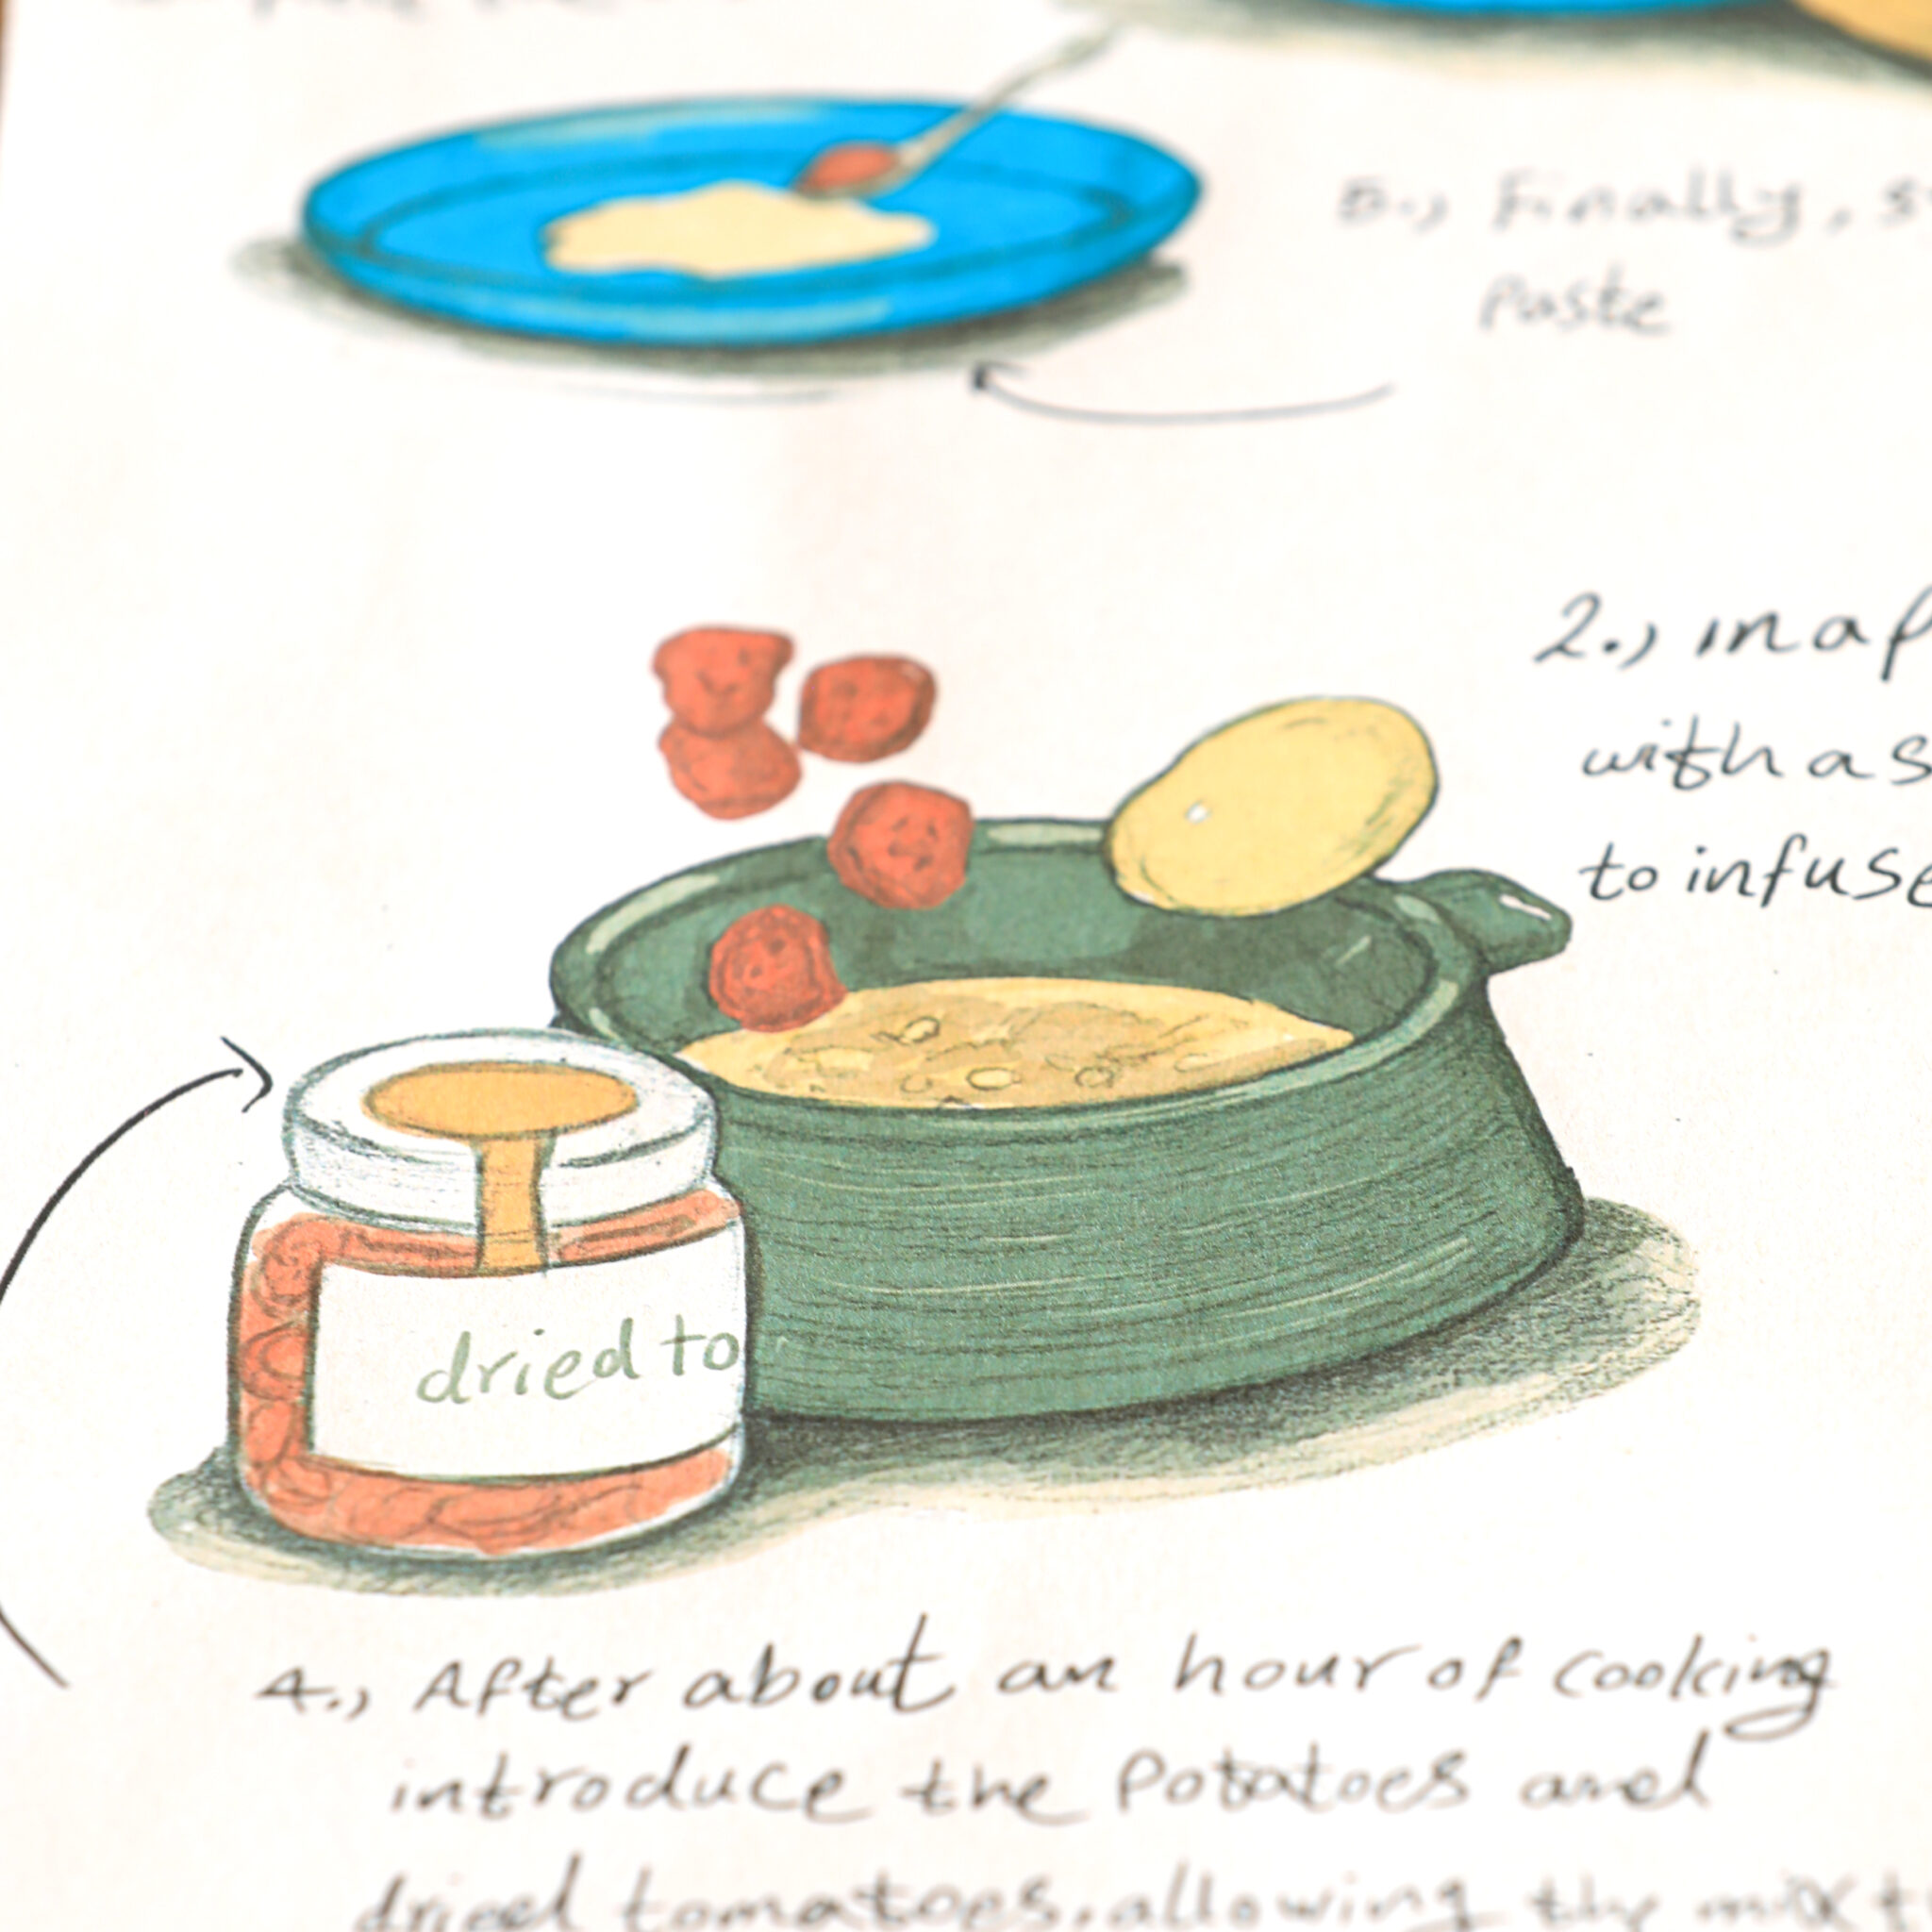 5., Finally, s
Paste
2., in a p
with a s
to infuse
dried to
4., After about an hour of cooking
introduce the Potatoes and
dried tomatoes, allowing the mixt